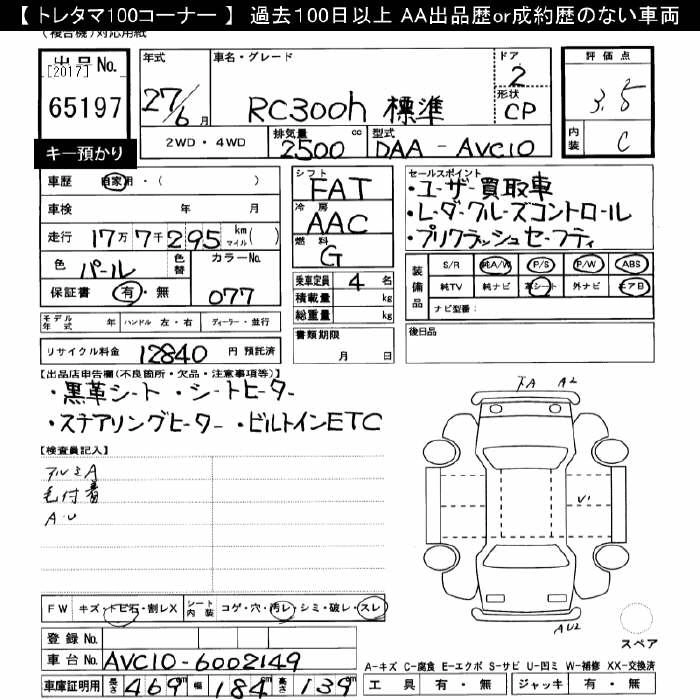 【 トレタマ100コーナー 】 過去100日以上 AA出品歴or成約歴のない車両
(複合機)対応用紙
出品No.
[2017]
65197
キー預かり
年式
27/6 月
車名・グレード
RC300h 標準
ドア
2
形状
CP
評価点
3.5
内装
C
2WD・4WD
排気量
2500 cc
型式
DAA-AVC10
車歴 自家用・( )
車検 年 月
走行 17万7千295 km マイル( )
色 パール 色替 カラーNo. 077
保証書 有・無
シフト
FAT
冷房
AAC
燃料
G
乗車定員 4 名
積載量 kg
総重量 kg
書類期限
月 日
セールスポイント
・ユーザー買取車
・レーダークルーズコントロール
・プリクラッシュセーフティ
装備品 S/R 純A/W P/S P/W ABS
純TV 純ナビ 革シート 外ナビ エアB
ナビ型番:
後日品
モデル年式 年 ハンドル 左・右 ディーラー・並行
リサイクル料金 12840 円 預託済
【出品店申告欄(不良箇所・欠品・注意事項等)】
・黒革シート ・シートヒーター
・ステアリングヒーター ・ビルトインETC
【検査員記入】
アルミA
毛付着
A・U
下A A2
V1
AU2
スペア
FW キズ・トビ石・割レX シート内装 コゲ・穴・汚レ・シミ・破レ・スレ
登録No.
車台No. AVC10-6002149
車庫証明用 長さ 469 cm 幅 184 cm 高さ 139 cm
A-キズ C-腐食 E-エクボ S-サビ U-凹ミ W-補修 XX-交換済
工具 有・無 ジャッキ 有・無